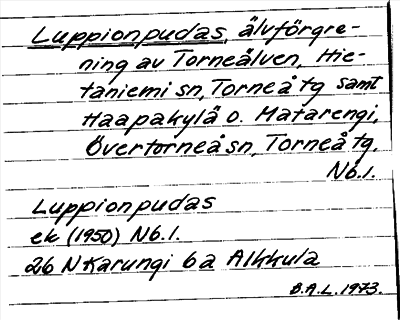 Luppionpudas, älvförgre-
ning av Torneälven, Hie-
taniemi sn, Torneå tg samt
Haapakylä o. Matarengi,
Övertorneå sn, Torneå tg.
Nb.1.
Luppionpudas
ek (1950) Nb.1.
26 N Karungi 6 a Alkkula
B.A.L. 1973.